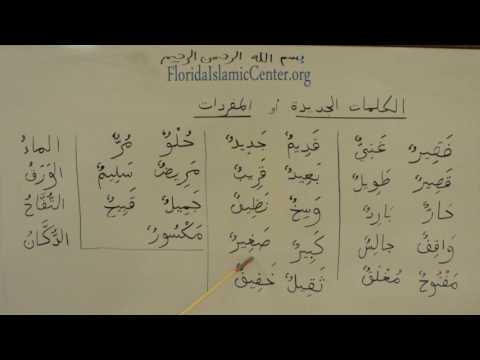 بسم الله الرحمن الرحيم
FloridaIslamicCenter.org
الكلمات الجديدة أو المفردات
فَقِيرٌ غَنِيٌّ قَدِيمٌ جَدِيدٌ حُلْوٌ مُرٌّ الماءُ
قَصِيرٌ طَوِيلٌ بَعِيدٌ قَرِيبٌ مَرِيضٌ سَلِيمٌ الوَرَقُ
حَارٌّ بَارِدٌ وَسِخٌ نَظِيفٌ جَمِيلٌ قَبِيحٌ التُّفَّاحُ
وَاقِفٌ جالِسٌ كَبِيرٌ صَغِيرٌ مَكْسُورٌ الدُّكَّانُ
مَفْتُوحٌ مُغْلَقٌ ثَقِيلٌ خَفِيفٌ